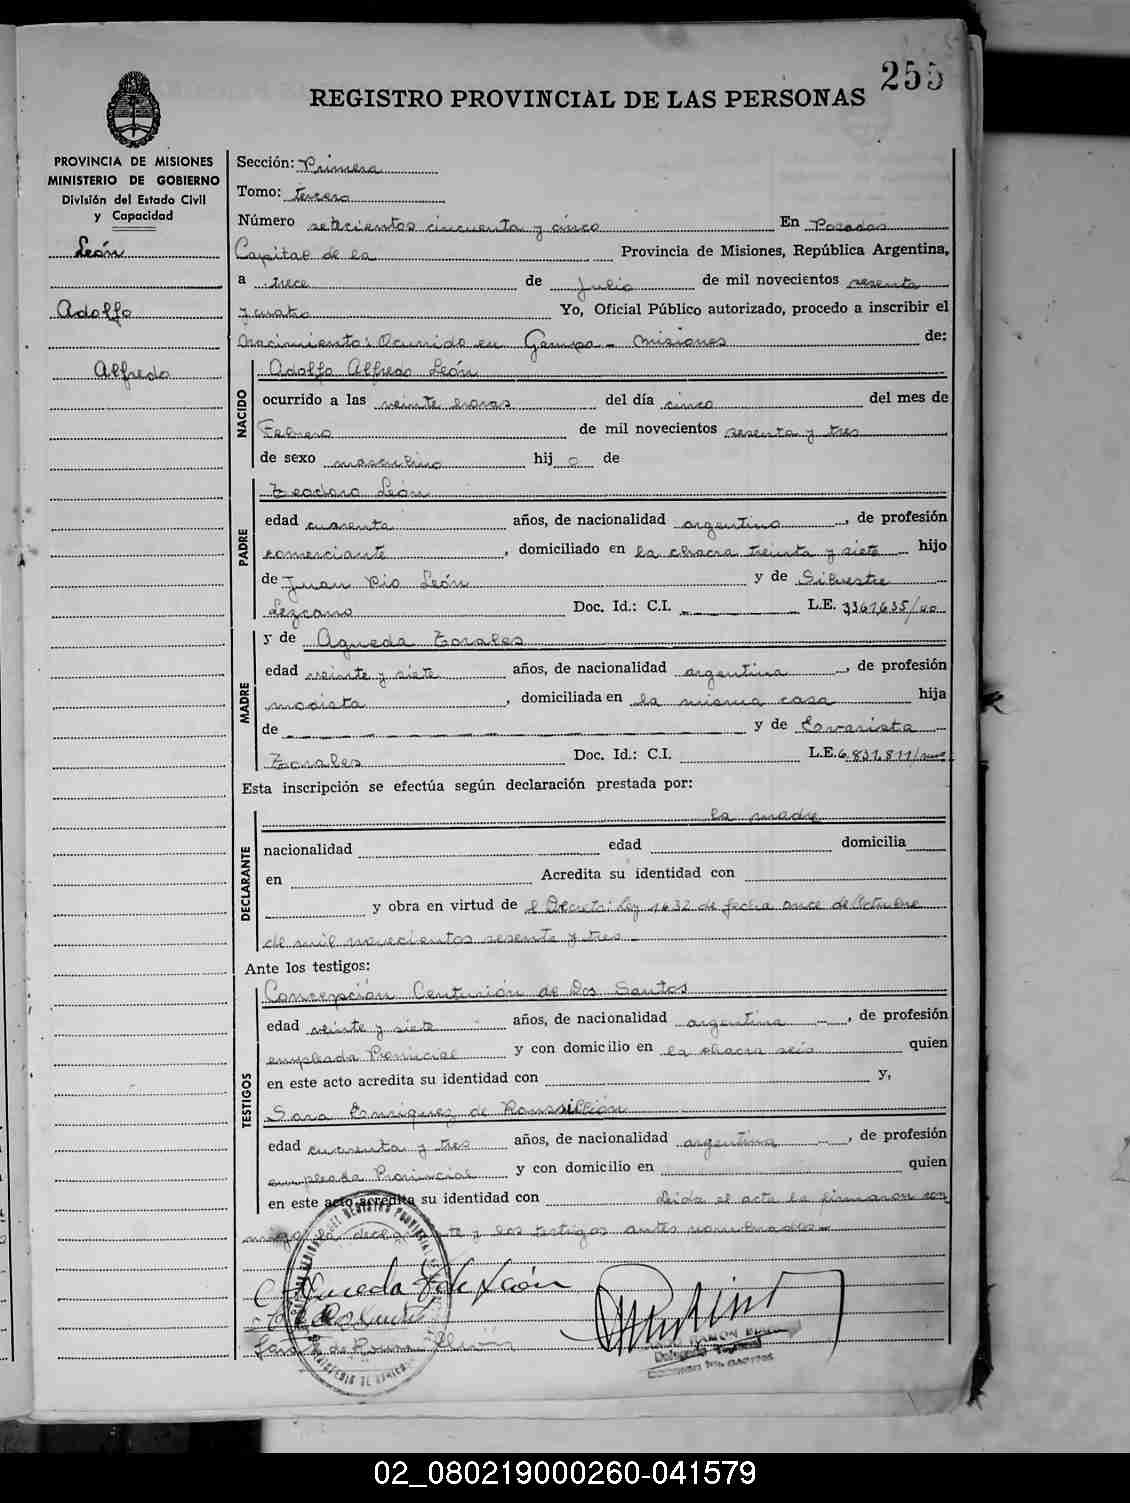 255
REGISTRO PROVINCIAL DE LAS PERSONAS
PROVINCIA DE MISIONES
MINISTERIO DE GOBIERNO
División del Estado Civil
y Capacidad
León
Adolfo
Alfredo
Sección: Primera
Tomo: tercero
Número setecientos cincuenta y cinco En Posadas
Capital de la Provincia de Misiones, República Argentina,
a trece de Julio de mil novecientos sesenta
y cuatro Yo, Oficial Público autorizado, procedo a inscribir el
nacimiento: Ocurrido en Garupa - Misiones de:
NACIDO
Adolfo Alfredo León
ocurrido a las veinte horas del día cinco del mes de
Febrero de mil novecientos sesenta y tres
de sexo masculino hij o de
PADRE
Teodoro León
edad cuarenta años, de nacionalidad argentino, de profesión
comerciante, domiciliado en la chacra treinta y siete hijo
de Juan Pio León y de Silvestre
Lezcano Doc. Id.: C.I. L.E.
MADRE
y de Agueda Torales
edad veinte y siete años, de nacionalidad argentina, de profesión
modista, domiciliada en la misma casa hija
de y de Evarista
Torales Doc. Id.: C.I. L.E. 6.831.811/
Esta inscripción se efectúa según declaración prestada por:
DECLARANTE
la madre
nacionalidad edad domicilia
en Acredita su identidad con
y obra en virtud de el Decreto: Ley 1632 de fecha once de Octubre
de mil novecientos sesenta y tres
Ante los testigos:
TESTIGOS
Concepción Centurión de Dos Santos
edad veinte y siete años, de nacionalidad argentina, de profesión
empleada Provincial y con domicilio en la chacra seis quien
en este acto acredita su identidad con y,
Sara Enriquez de Roussillión
edad cuarenta y tres años, de nacionalidad argentina, de profesión
empleada Provincial y con domicilio en quien
en este acto acredita su identidad con Leida el acta la firmaron con
migo la declarante y los testigos antes nombrados
Agueda T de León
02_080219000260-041579